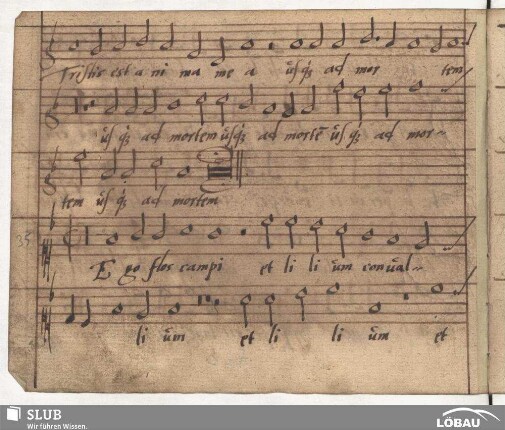 Tristis est a ni ma me a usq; ad mor tem
usq; ad mortem usq; ad mortē usq; ad mor-
tem usq; ad mortem
35
E go flos campi et li li um conval-
li um et li li um et
SLUB
Wir führen Wissen.
LÖBAU